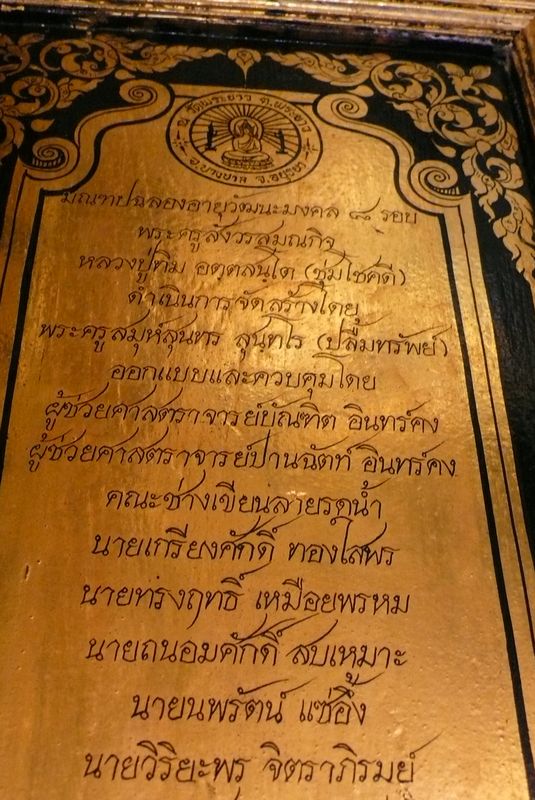 ณ วัดพระขาว ต.พระขาว
อ.บางบาล จ.อยุธยา
มณฑปฉลองอายุวัฒนะมงคล ๘ รอบ
พระครูสังวรสมณกิจ
หลวงปู่ทิม อตฺตสนฺโต (ชุ่มโชคดี)
ดำเนินการจัดสร้างโดย
พระครูสมุห์สุนทร สุนฺทโร (ปลื้มทรัพย์)
ออกแบบและควบคุมโดย
ผู้ช่วยศาสตราจารย์บัณฑิต อินทร์คง
ผู้ช่วยศาสตราจารย์ปานฉัตท์ อินทร์คง
คณะช่างเขียนลายรดน้ำ
นายเกรียงศักดิ์ ทองโสพร
นายทรงฤทธิ์ เหมือยพรหม
นายถนอมศักดิ์ สบเหมาะ
นายนพรัตน์ แซ่อึ้ง
นายวิริยะพร จิตราภิรมย์